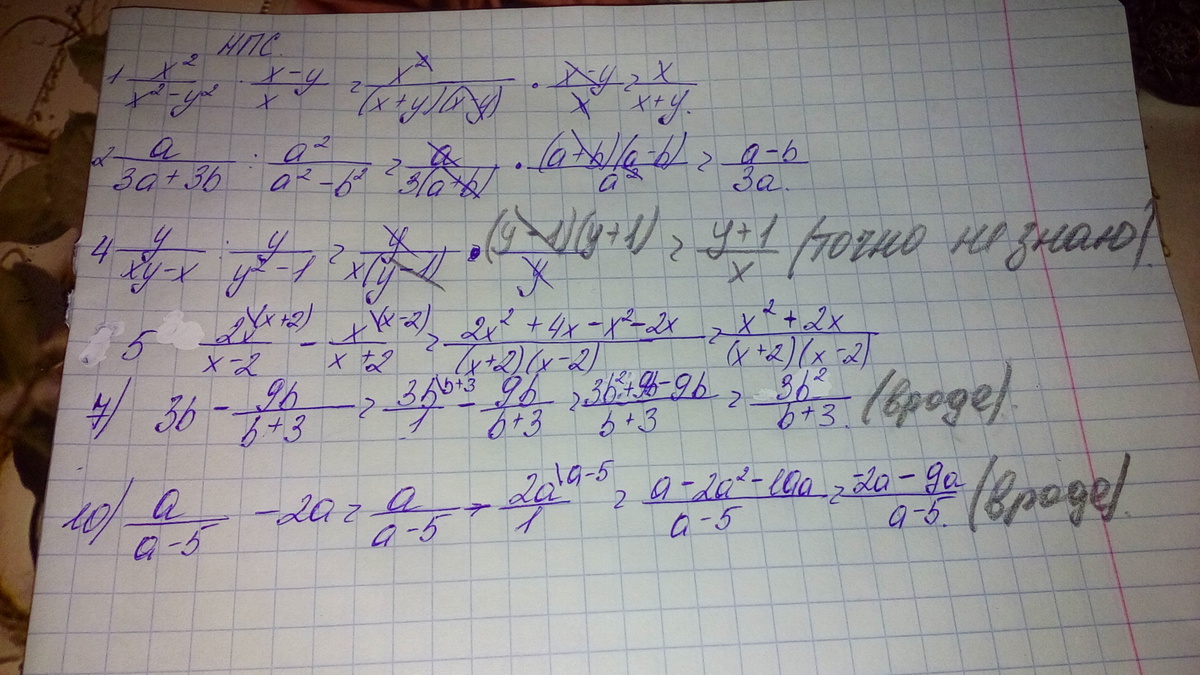 НПС.
1 x²/(x²-y²) · (x-y)/x = x²/((x+y)(x-y)) · (x-y)/x = x/(x+y).
2 a/(3a+3b) : a²/(a²-b²) = a/(3(a+b)) · ((a+b)(a-b))/a² = (a-b)/(3a).
4 y/(xy-x) : y/(y²-1) = y/(x(y-1)) · ((y-1)(y+1))/y = (y+1)/x (точно не знаю).
5 2x\(x+2)/(x-2) - x\(x-2)/(x+2) = (2x²+4x-x²-2x)/((x+2)(x-2)) = (x²+2x)/((x+2)(x-2))
7) 3b - 9b/(b+3) = 3b\b+3/1 - 9b/(b+3) = (3b²+9b-9b)/(b+3) = 3b²/(b+3). (вроде).
10) a/(a-5) - 2a = a/(a-5) - 2a\a-5/1 = (a-2a²-10a)/(a-5) = (-2a-9a)/(a-5). (вроде).